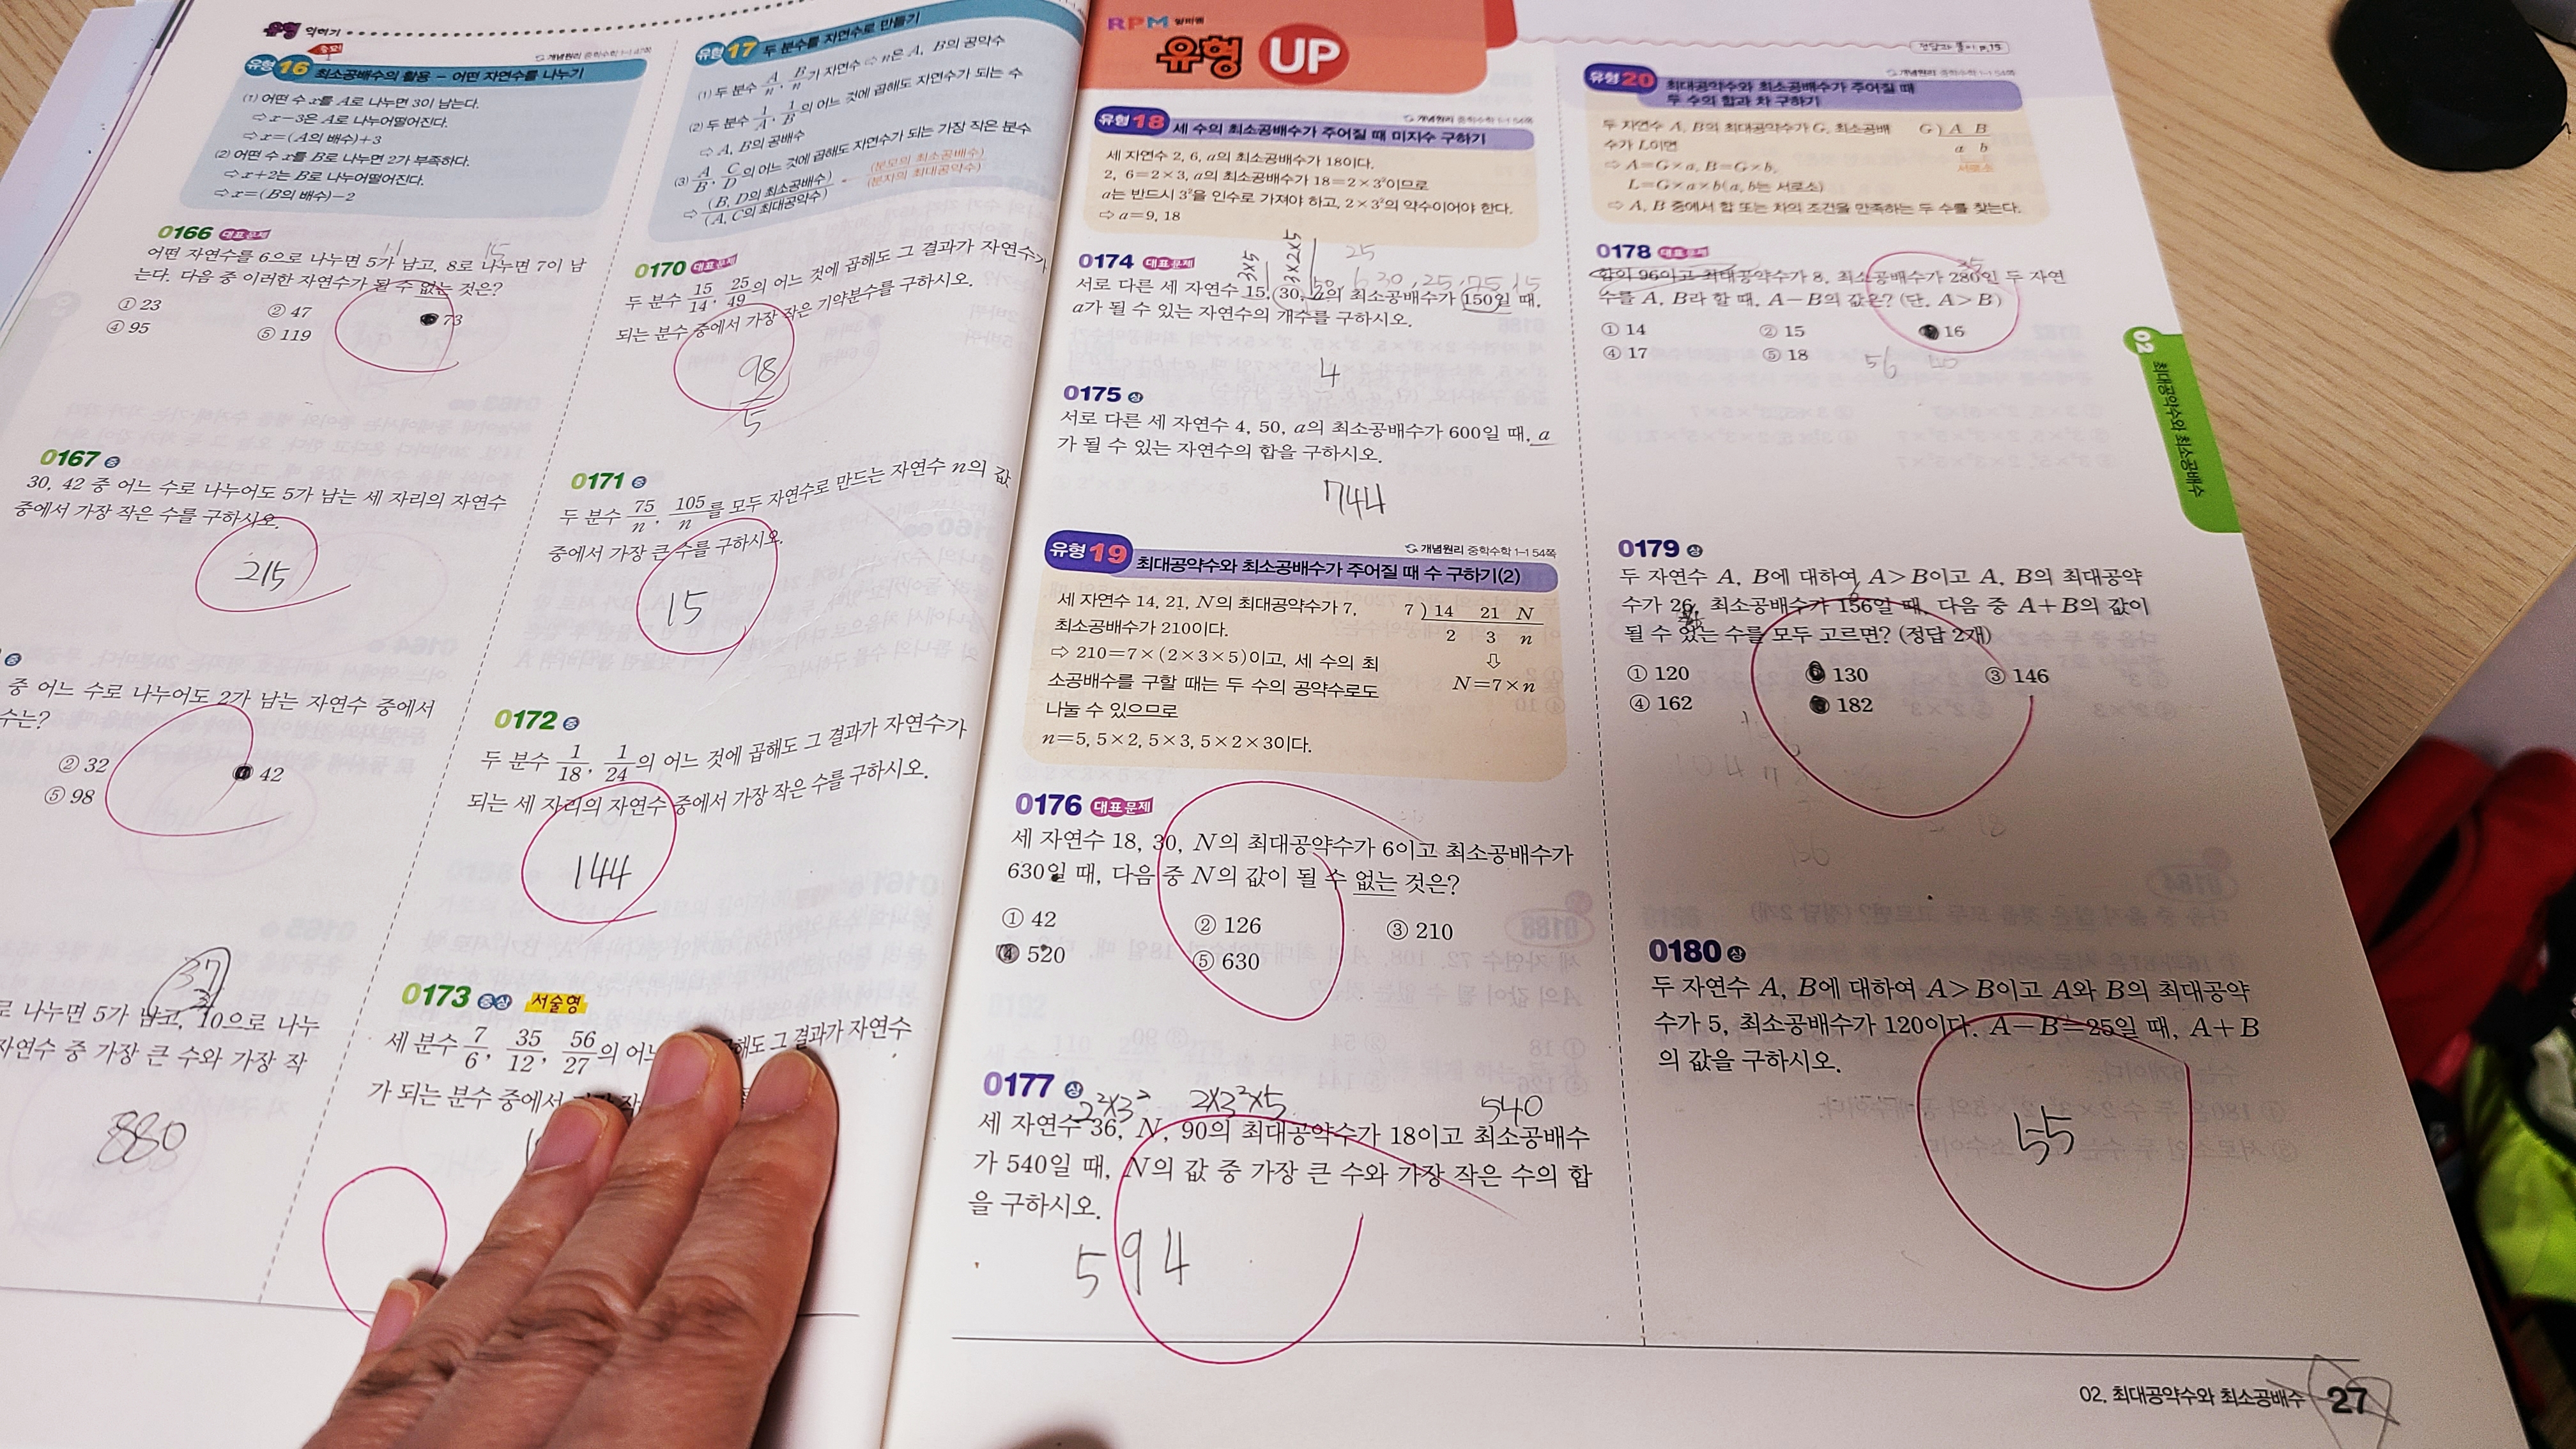 유형 익히기
중요!
개념원리 중학수학 1-1 47쪽
유형 16 최소공배수의 활용 – 어떤 자연수를 나누기
(1) 어떤 수 x를 A로 나누면 3이 남는다.
⇨ x−3은 A로 나누어떨어진다.
⇨ x=(A의 배수)+3
(2) 어떤 수 x를 B로 나누면 2가 부족하다.
⇨ x+2는 B로 나누어떨어진다.
⇨ x=(B의 배수)−2
0166 대표문제
어떤 자연수를 6으로 나누면 5가 남고, 8로 나누면 7이 남
는다. 다음 중 이러한 자연수가 될 수 없는 것은?
① 23 ② 47 73
④ 95 ⑤ 119
0167 중
30, 42 중 어느 수로 나누어도 5가 남는 세 자리의 자연수
중에서 가장 작은 수를 구하시오.
215
중
중 어느 수로 나누어도 2가 남는 자연수 중에서
수는?
② 32 42
⑤ 98
37
로 나누면 5가 남고, 10으로 나누
자연수 중 가장 큰 수와 가장 작
880
유형 17 두 분수를 자연수로 만들기
(1) 두 분수 A/n, B/n가 자연수 ⇨ n은 A, B의 공약수
(2) 두 분수 1/A, 1/B의 어느 것에 곱해도 자연수가 되는 수
⇨ A, B의 공배수
(3) A/B, C/D의 어느 것에 곱해도 자연수가 되는 가장 작은 분수
⇨ (B, D의 최소공배수)/(A, C의 최대공약수) ← (분모의 최소공배수)/(분자의 최대공약수)
0170 대표문제
두 분수 15/14, 25/49의 어느 것에 곱해도 그 결과가 자연수가
되는 분수 중에서 가장 작은 기약분수를 구하시오.
98/5
0171 중
두 분수 75/n, 105/n를 모두 자연수로 만드는 자연수 n의 값
중에서 가장 큰 수를 구하시오.
15
0172 중
두 분수 1/18, 1/24의 어느 것에 곱해도 그 결과가 자연수가
되는 세 자리의 자연수 중에서 가장 작은 수를 구하시오.
144
0173 중상 서술형
세 분수 7/6, 35/12, 56/27의 어느 해도 그 결과가 자연수
가 되는 분수 중에서
RPM 알피엠
유형 UP
개념원리 중학수학 1-1 54쪽
유형 18 세 수의 최소공배수가 주어질 때 미지수 구하기
세 자연수 2, 6, a의 최소공배수가 18이다.
2, 6=2×3, a의 최소공배수가 18=2×3²이므로
a는 반드시 3²을 인수로 가져야 하고, 2×3²의 약수이어야 한다.
⇨ a=9, 18
0174 대표문제
3×5 3×2×5 25
서로 다른 세 자연수 15, 30, a의 최소공배수가 150일 때,
a가 될 수 있는 자연수의 개수를 구하시오.
4
0175 상
서로 다른 세 자연수 4, 50, a의 최소공배수가 600일 때, a
가 될 수 있는 자연수의 합을 구하시오.
744
개념원리 중학수학 1-1 54쪽
유형 19 최대공약수와 최소공배수가 주어질 때 수 구하기(2)
세 자연수 14, 21, N의 최대공약수가 7,
최소공배수가 210이다.
⇨ 210=7×(2×3×5)이고, 세 수의 최
소공배수를 구할 때는 두 수의 공약수로도
나눌 수 있으므로
n=5, 5×2, 5×3, 5×2×3이다.
7 ) 14 21 N
2 3 n
⇩
N=7×n
0176 대표문제
세 자연수 18, 30, N의 최대공약수가 6이고 최소공배수가
630일 때, 다음 중 N의 값이 될 수 없는 것은?
① 42 ② 126 ③ 210
④ 520 ⑤ 630
0177 상
2²×3² 2×3²×5 540
세 자연수 36, N, 90의 최대공약수가 18이고 최소공배수
가 540일 때, N의 값 중 가장 큰 수와 가장 작은 수의 합
을 구하시오.
594
정답과 풀이 p.15
개념원리 중학수학 1-1 54쪽
유형 20 최대공약수와 최소공배수가 주어질 때
두 수의 합과 차 구하기
두 자연수 A, B의 최대공약수가 G, 최소공배
수가 L이면
⇨ A=G×a, B=G×b,
L=G×a×b(a, b는 서로소)
⇨ A, B 중에서 합 또는 차의 조건을 만족하는 두 수를 찾는다.
G ) A B
a b
서로소
0178 대표문제
35
합이 96이고 최대공약수가 8, 최소공배수가 280인 두 자연
수를 A, B라 할 때, A−B의 값은? (단, A>B)
① 14 ② 15 16
④ 17 ⑤ 18
56 40
0179 상
두 자연수 A, B에 대하여 A>B이고 A, B의 최대공약
수가 26, 최소공배수가 156일 때, 다음 중 A+B의 값이
될 수 있는 수를 모두 고르면? (정답 2개)
① 120 130 ③ 146
④ 162 182
0180 상
두 자연수 A, B에 대하여 A>B이고 A와 B의 최대공약
수가 5, 최소공배수가 120이다. A−B=25일 때, A+B
의 값을 구하시오.
55
02 최대공약수와 최소공배수
02. 최대공약수와 최소공배수 27